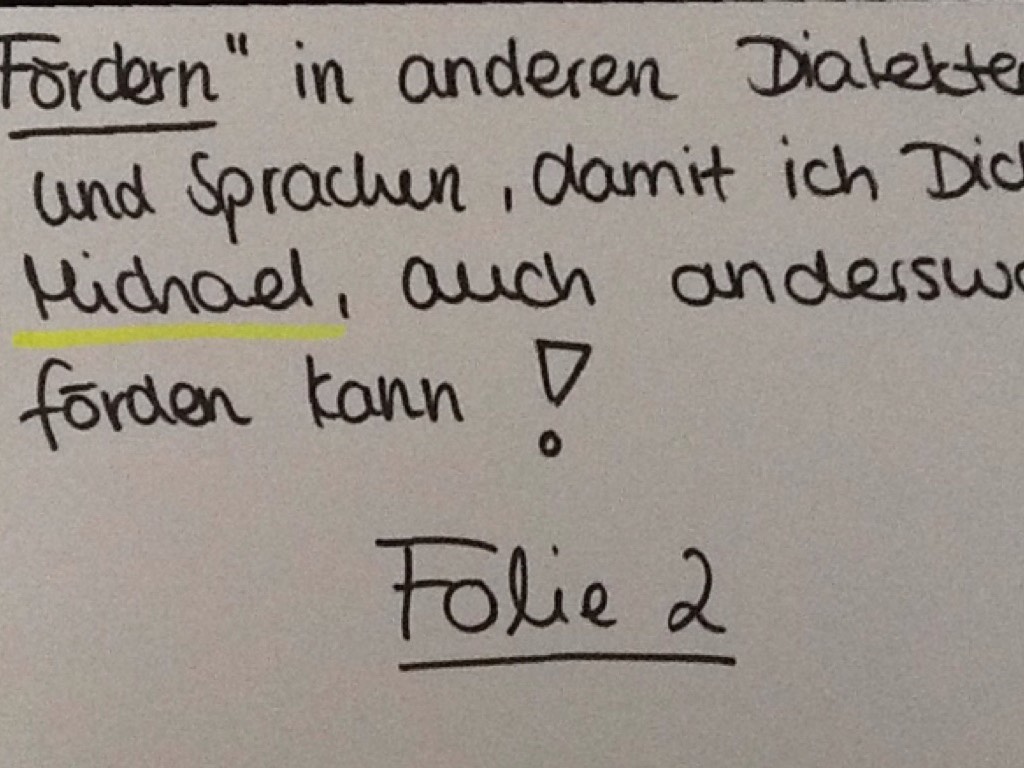 Fördern" in anderen Dialekten
und Sprachen, damit ich Dich
Michael, auch anderswo
förden kann !
Folie 2